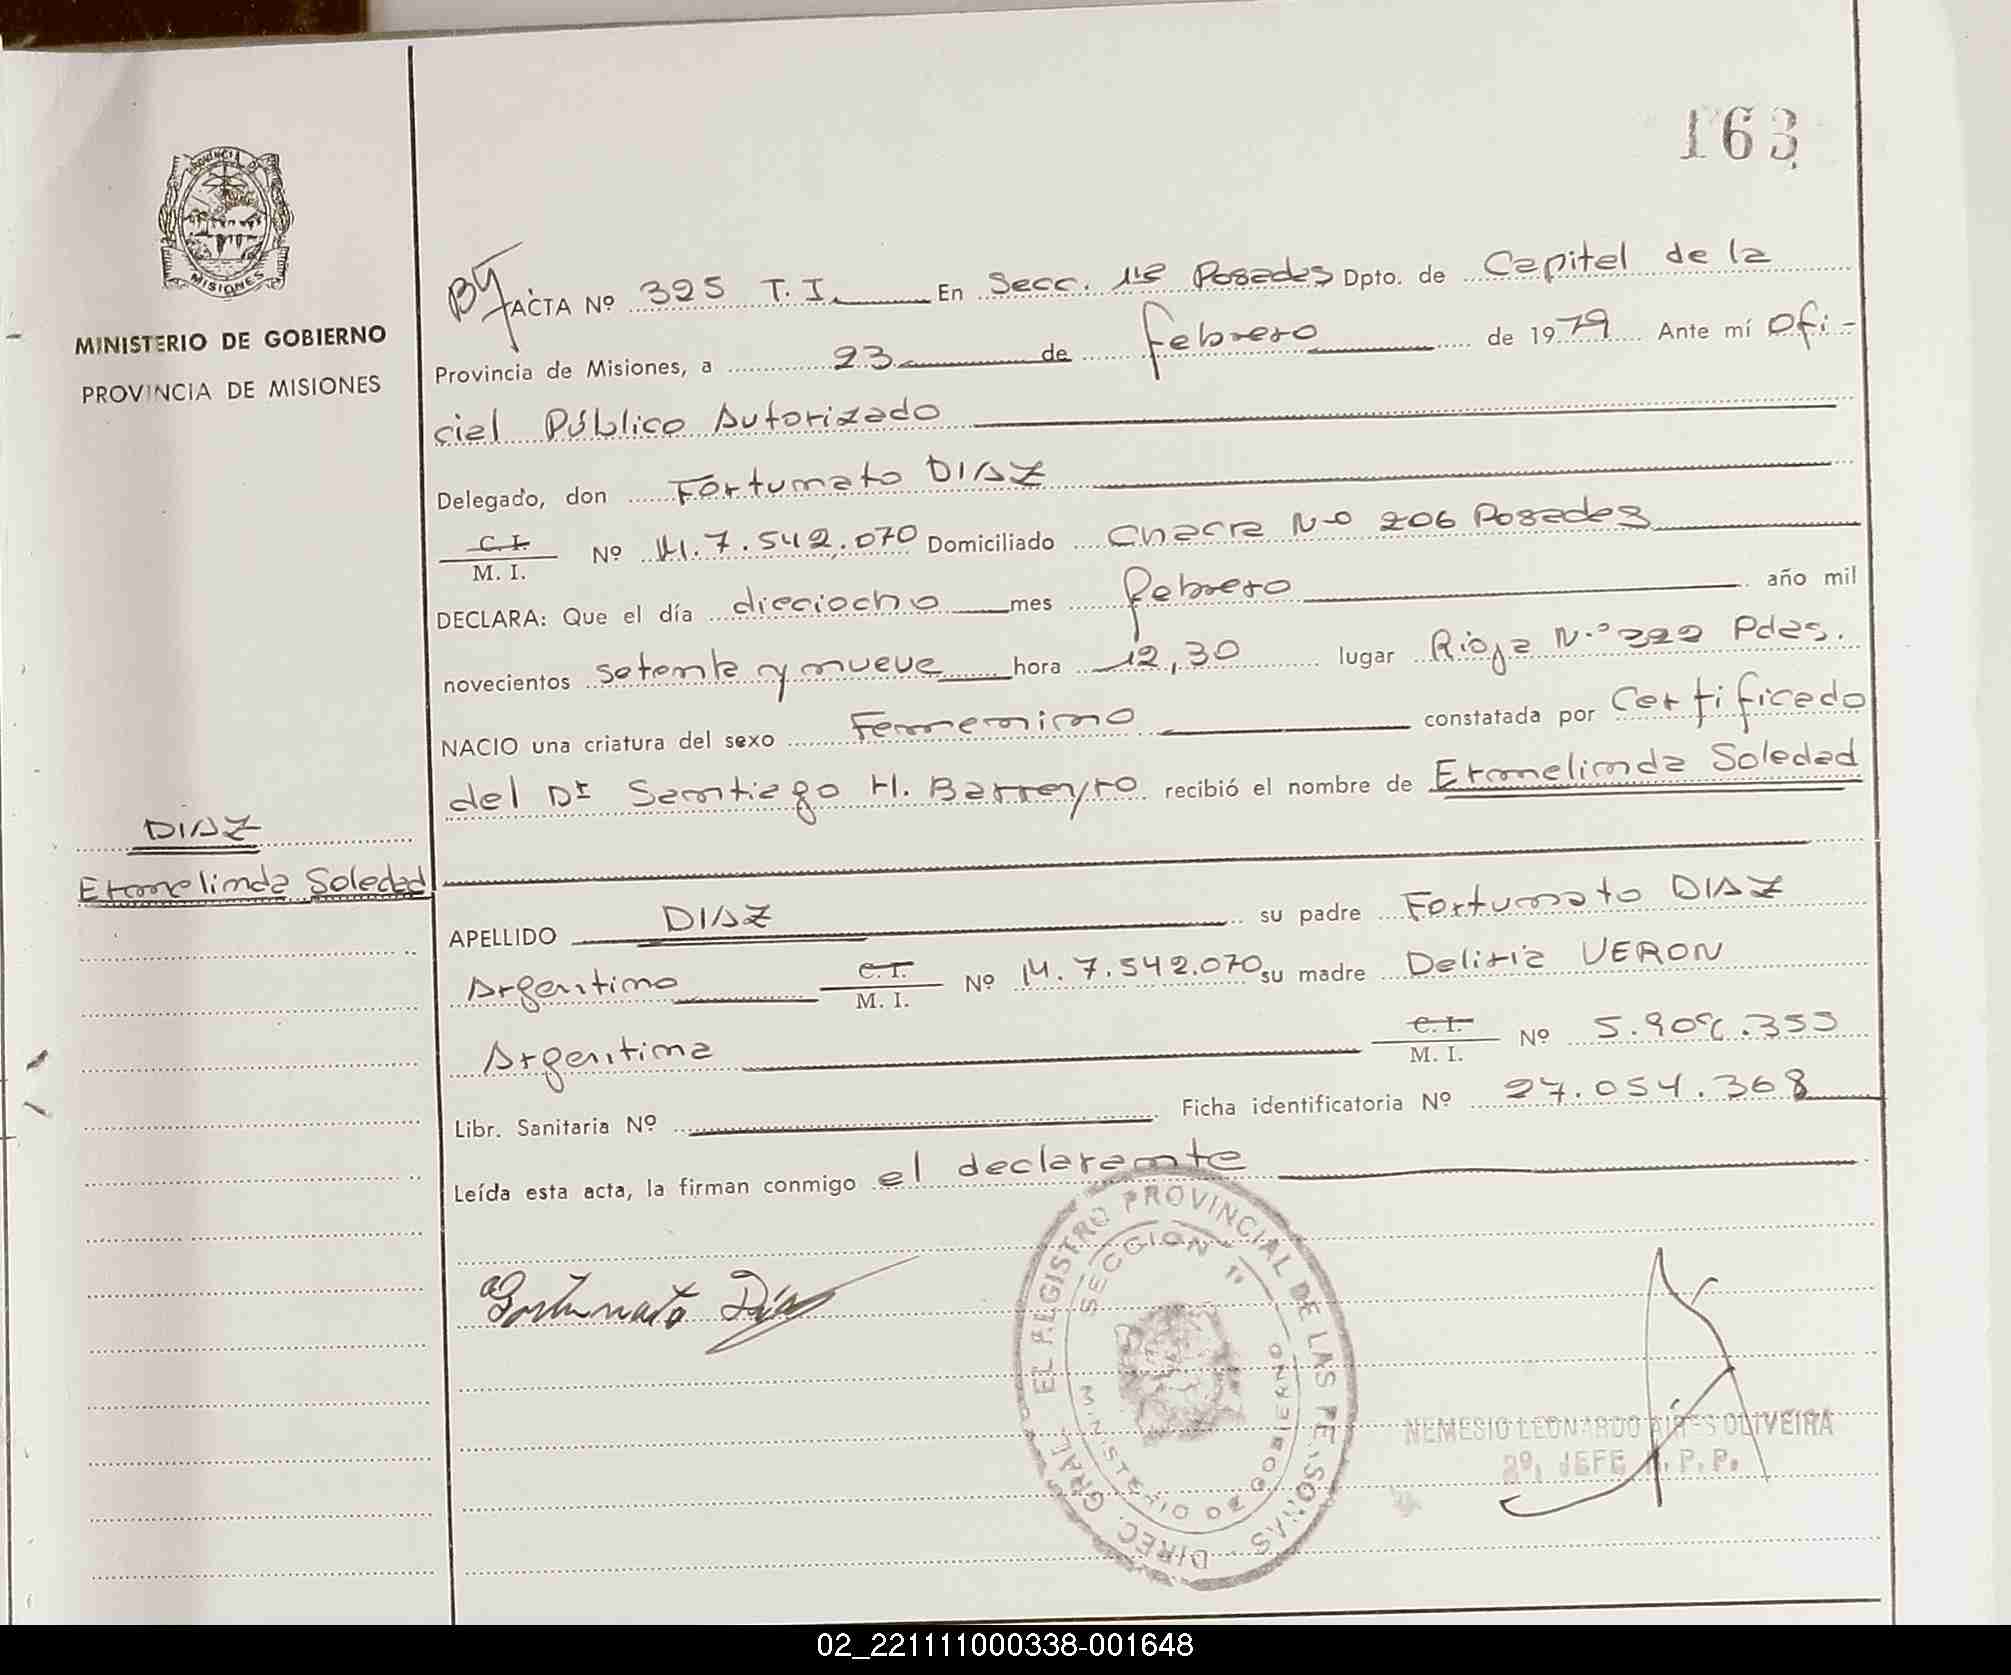 163
PROVINCIA DE
MISIONES
MINISTERIO DE GOBIERNO
PROVINCIA DE MISIONES
ACTA Nº 325 T.I. En Secc. 1ra Posadas Dpto. de Capital de la
Provincia de Misiones, a 23 de febrero de 1979 Ante mí Ofi-
cial Público Autorizado
Delegado, don Fortunato DIAZ
C. I.
M. I.
Nº M.7.542.070 Domiciliado Chacra Nº 206 Posadas
DECLARA: Que el día dieciocho mes febrero año mil
novecientos setenta y nueve hora 12,30 lugar Rioja Nº 322 Pdas.
NACIO una criatura del sexo Femenino constatada por Certificado
del Dr Santiago H. Barreyro recibió el nombre de Ermelinda Soledad
DIAZ
Ermelinda Soledad
APELLIDO DIAZ su padre Fortunato DIAZ
Argentino C.I. M. I. Nº M.7.542.070 su madre Deliria VERON
Argentina C.I. M. I. Nº
Libr. Sanitaria Nº Ficha identificatoria Nº 27.054.368
Leída esta acta, la firman conmigo el declarante
Fortunato Díaz
DIREC. GRAL. EL REGISTRO PROVINCIAL DE LAS PERSONAS
SECCION 1º
MINISTERIO DE GOBIERNO
NEMESIO LEONARDO AIRES OLIVEIRA
2º. JEFE R.P.P.
02_221111000338-001648